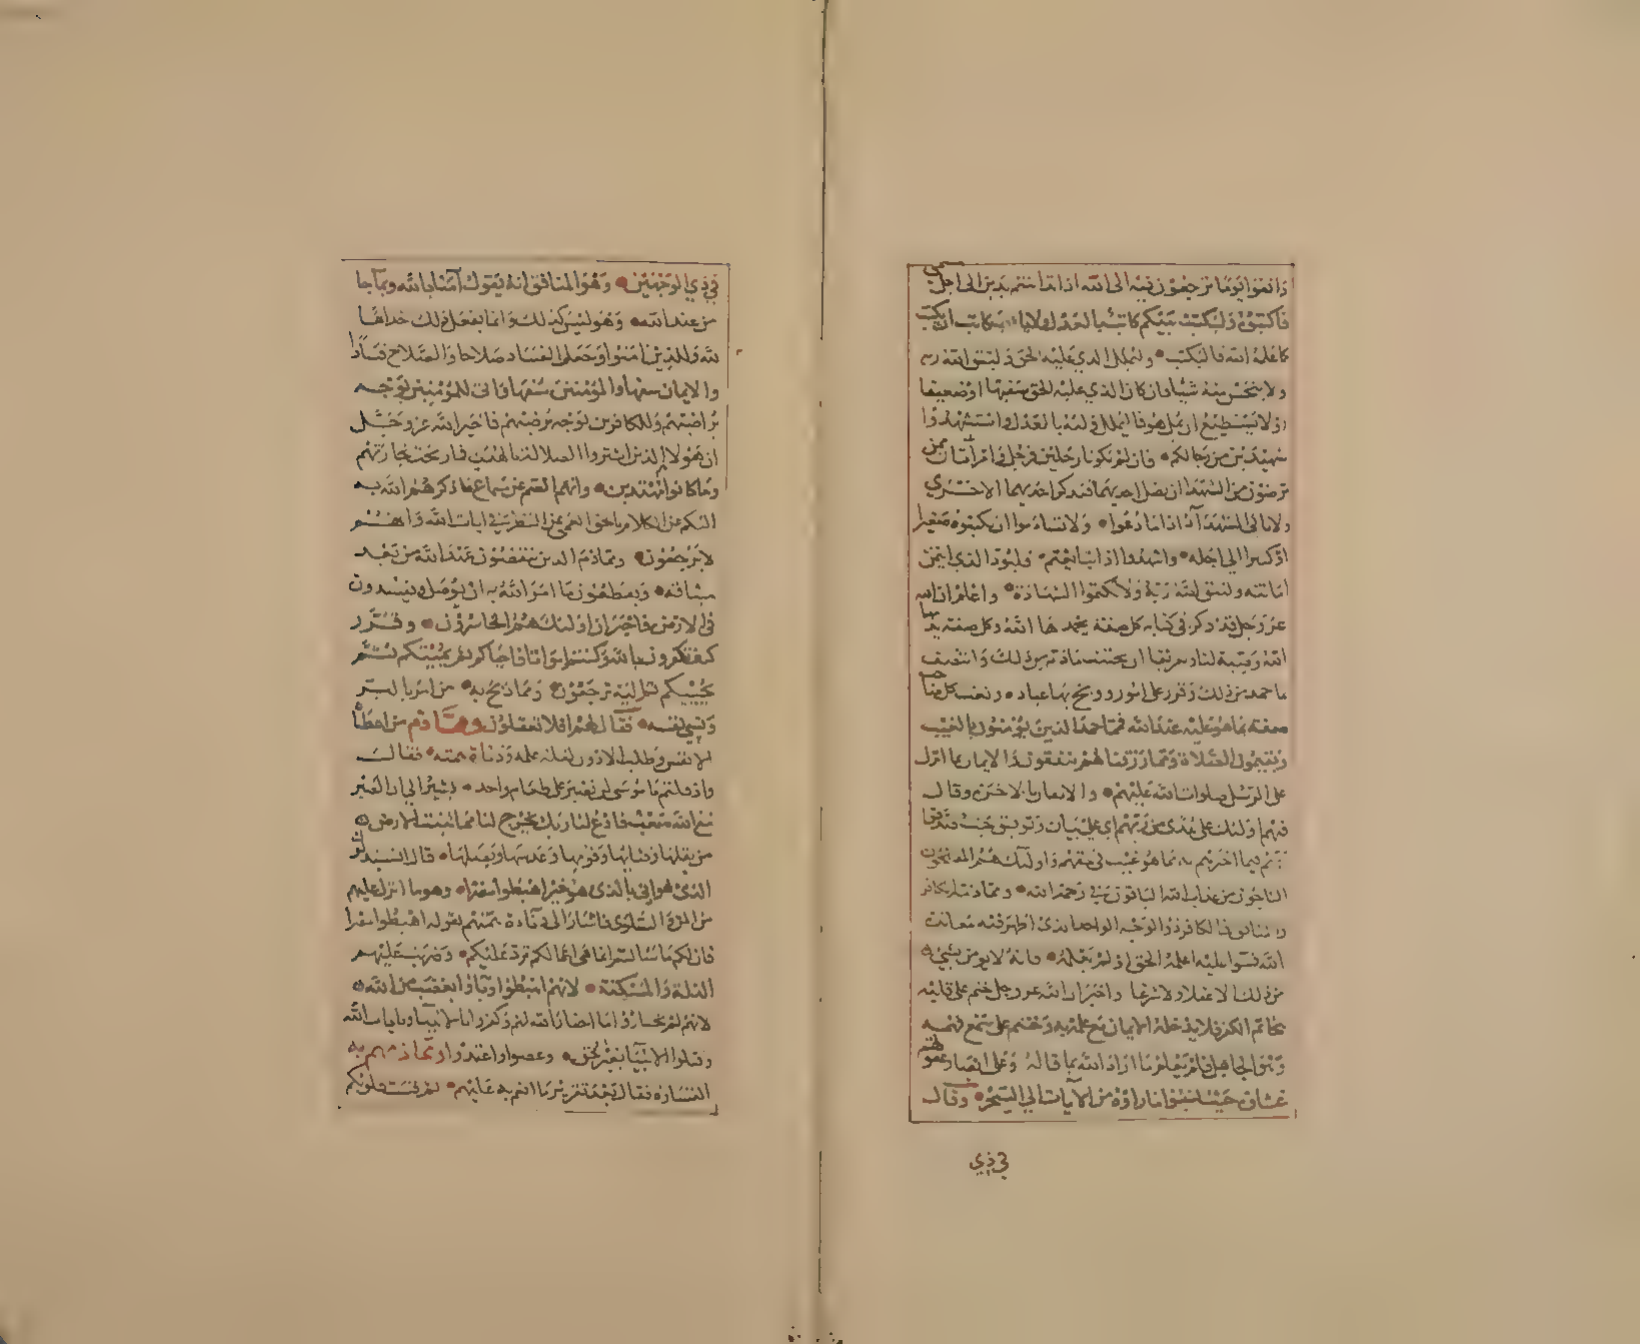 واتقوا يوما ترجعون فيه الى الله اذا تداينتم بدين الى اجل مسمى
فاكتبوه وليكتب بينكم كاتب بالعدل ولا ياب كاتب ان يكتب
كما علمه الله فاليكتب وليملل الذي عليه الحق وليتق الله ربه
ولا يبخس منه شيئا وان كان الذي عليه الحق سفيها او ضعيفا
او لا يستطيع ان يمل هو فاليملل وليه بالعدل واستشهدوا
شهيدين من رجالكم فان لم يكونا رجلين فرجل وامراتان ممن
ترضون من الشهدا ان تضل احديهما فتذكر احديهما الاخرى
ولا يابى الشهدآء اذا ما دعوا ولا تساموا ان تكتبوه صغيرا
او كبيرا الى اجله واشهدوا اذا تبايعتم وليود الذي ايتمن
امانته وليتق الله ربه ولا تكتموا الشهادة واعلم ان الله
عز وجل قد ذكر في كتابه كل صفة يحمدها الله وكل صفة يذمها
الله
ما حمد من ذلك
صفته بما هو عليه عند الله فمما حمد الذين يؤمنون بالغيب
ويقيمون الصلاة ومما رزقناهم ينفقون والايمان بما انزل
على الرسل صلوات الله عليهم والايمان بالاخرة وقال
فيهم اولئك على هدى من ربهم اي على بيان وتوفيق حيث صدقوا
ربهم فيما اخبرهم به مما هو غيب في حقهم واولئك هم المفلحون
الناجون من عذاب الله الباقون في رحمة الله ومما ذم الكافر
والمنافق فالكافر ذو الوجه الواحد الذي اظهر فيه معاندة
الله فسوا عليه اعلمه الحق او لم يعلمه فانه لا يومن بشيء
من ذلك لا عقلا ولا شرعا واخبر ان الله عز وجل ختم على قلبه
بخاتم الكفر فلا يدخله الايمان مع علمه به وختم على سمع فهمه
وهو الجاهل فلم يعلم ما اراد الله بما قاله وعلى ابصار عقولهم
غشاوة حيث نسبوا ما راوه من الآيات الى السحر وقال
في ذي
في ذي الوجهين وهو المنافق انه يقول آمنا بالله وبما جا
من عند الله وهو ليس كذلك وانما يفعل ذلك خداعا
لله وللذين آمنوا وجعلوا الفساد صلاحا والصلاح فسادا
والايمان سفها والمؤمنين سفها واتى للمؤمنين بوجه
يراضيهم وللكافرين بوجه يرضيهم فاخبر الله عز وجل
ان هولا الذين اشتروا الضلالة بالهدى فما ربحت تجارتهم
وما كانوا مهتدين وانهم الصم عن سماع ما ذكرهم الله به
البكم عن الكلام بالحق العمي عن النظر في ايات الله وانهم
لا يرجعون ومما ذم الذين ينقضون عهد الله من بعد
ميثاقه ويقطعون ما امر الله به ان يوصل ويفسدون
في الارض فاخبر ان اولئك هم الخاسرون وقرر
كيف تكفرون بالله وكنتم امواتا فاحياكم ثم يميتكم ثم
يحييكم ثم اليه ترجعون ومما ذبح به من امر بالبر
ونسي نفسه فقال لهم افلا تعقلون ومما ذم من اعطا
الانفس وطلب الادون لقلة علمه ودناة همته فقال
واذ قلتم يا موسى لن نصبر على طعام واحد يشير الى ان الصبر
مع الله صعب فادع لنا ربك يخرج لنا مما تنبت الارض
من بقلها وقثائها وفومها وعدسها وبصلها قال اتستبدلون
الذي هو ادنى بالذي هو خير اهبطوا مصرا وهو ما انزل عليهم
من المن والسلوى فاشار الى دناءة همتهم بقوله اهبطوا مصرا
فان لكم ما سالتم انما هي اعمالكم ترد عليكم وضربت عليهم
الذلة والمسكنة لانهم اهبطوا وباؤا بغضب من الله
لانهم لم يختاروا ما اختار الله لهم وكفروا بالانبيا وبايات الله
وقتلوا الانبيا بغير الحق وعصوا واعتدوا ومما ذمهم به
القساوة فقال بعد تقرير ما انعم به عليهم ثم قست قلوبكم